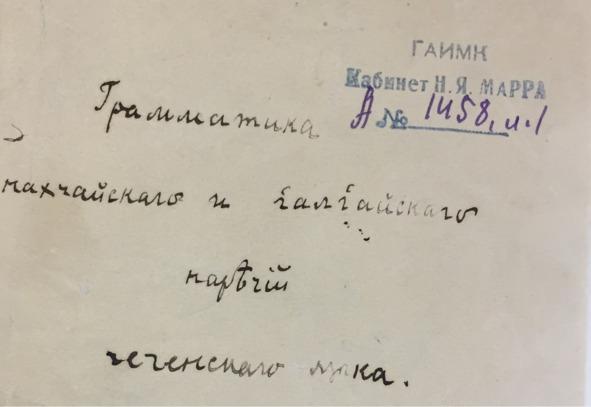 ГАИМК
Кабинет Н.Я. МАРРА
А № 1458, ч.1
Грамматика
нахчайскаго и галгайскаго
нарѣчій
чеченскаго языка.